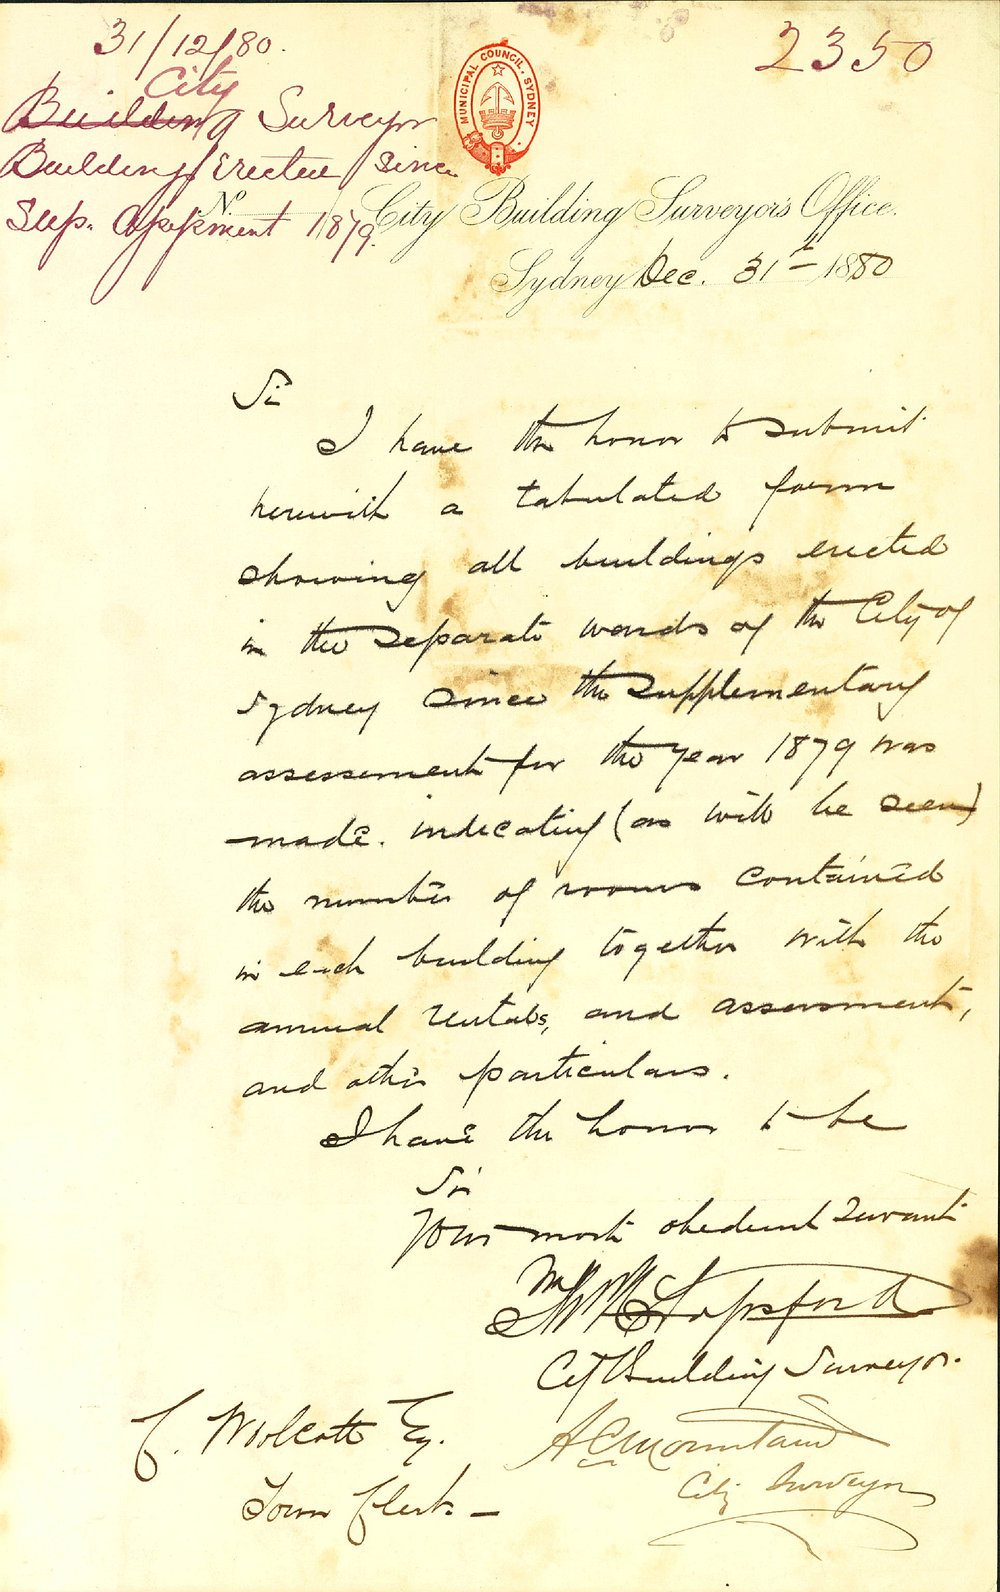 31/12/80.
2350
City
Building Surveyor
Buildings Erected since
Sup. Assessment 1879.
MUNICIPAL COUNCIL. SYDNEY
No.
City Building Surveyor's Office.
Sydney Dec. 31st 1880
Sir
I have the honor to submit
herewith a tabulated form
showing all buildings erected
in the separate wards of the City of
Sydney since the supplementary
assessment for the year 1879 was
made. indicating (as will be seen)
the number of rooms contained
in each building together with the
annual rentals, and assessment,
and other particulars.
I have the honor to be
Sir
Your most obedient Servant
Hapsford
City Building Surveyor.
A C Mountain
City Surveyor
C. Woolcott Esq.
Town Clerk –